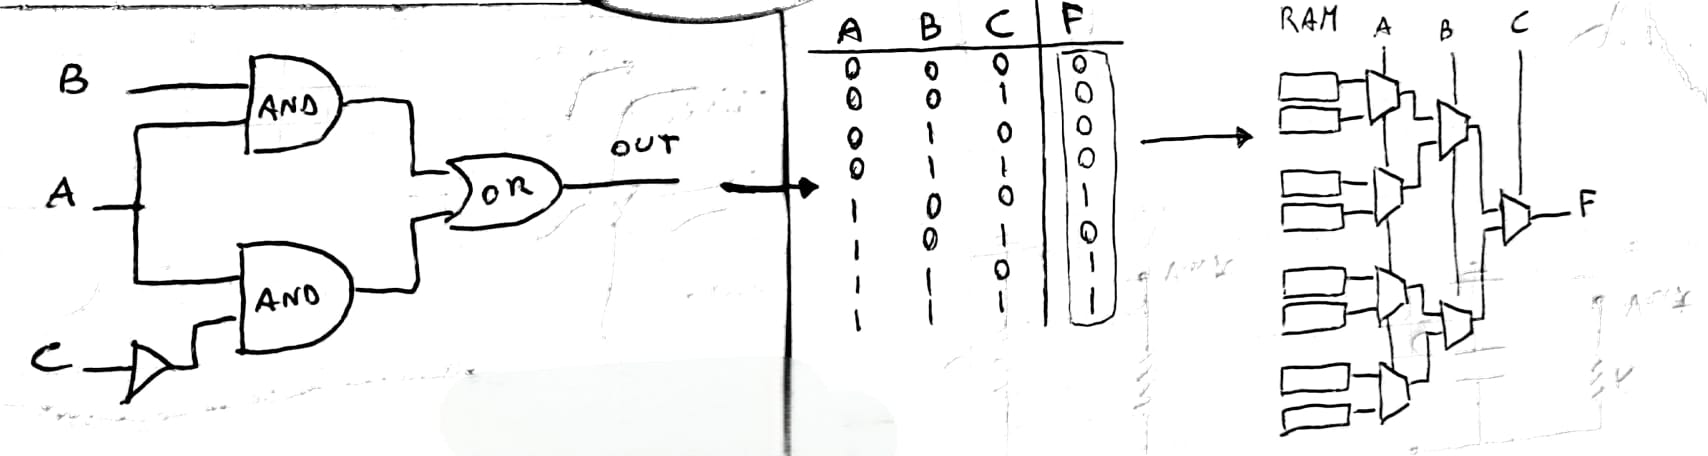 B
AND
A
OUT
OR
AND
C
A B C F
0 0 0 0
0 0 1 0
0 1 0 0
0 1 1 0
1 0 0 1
1 0 1 0
1 1 0 1
1 1 1 1
RAM A B C
F